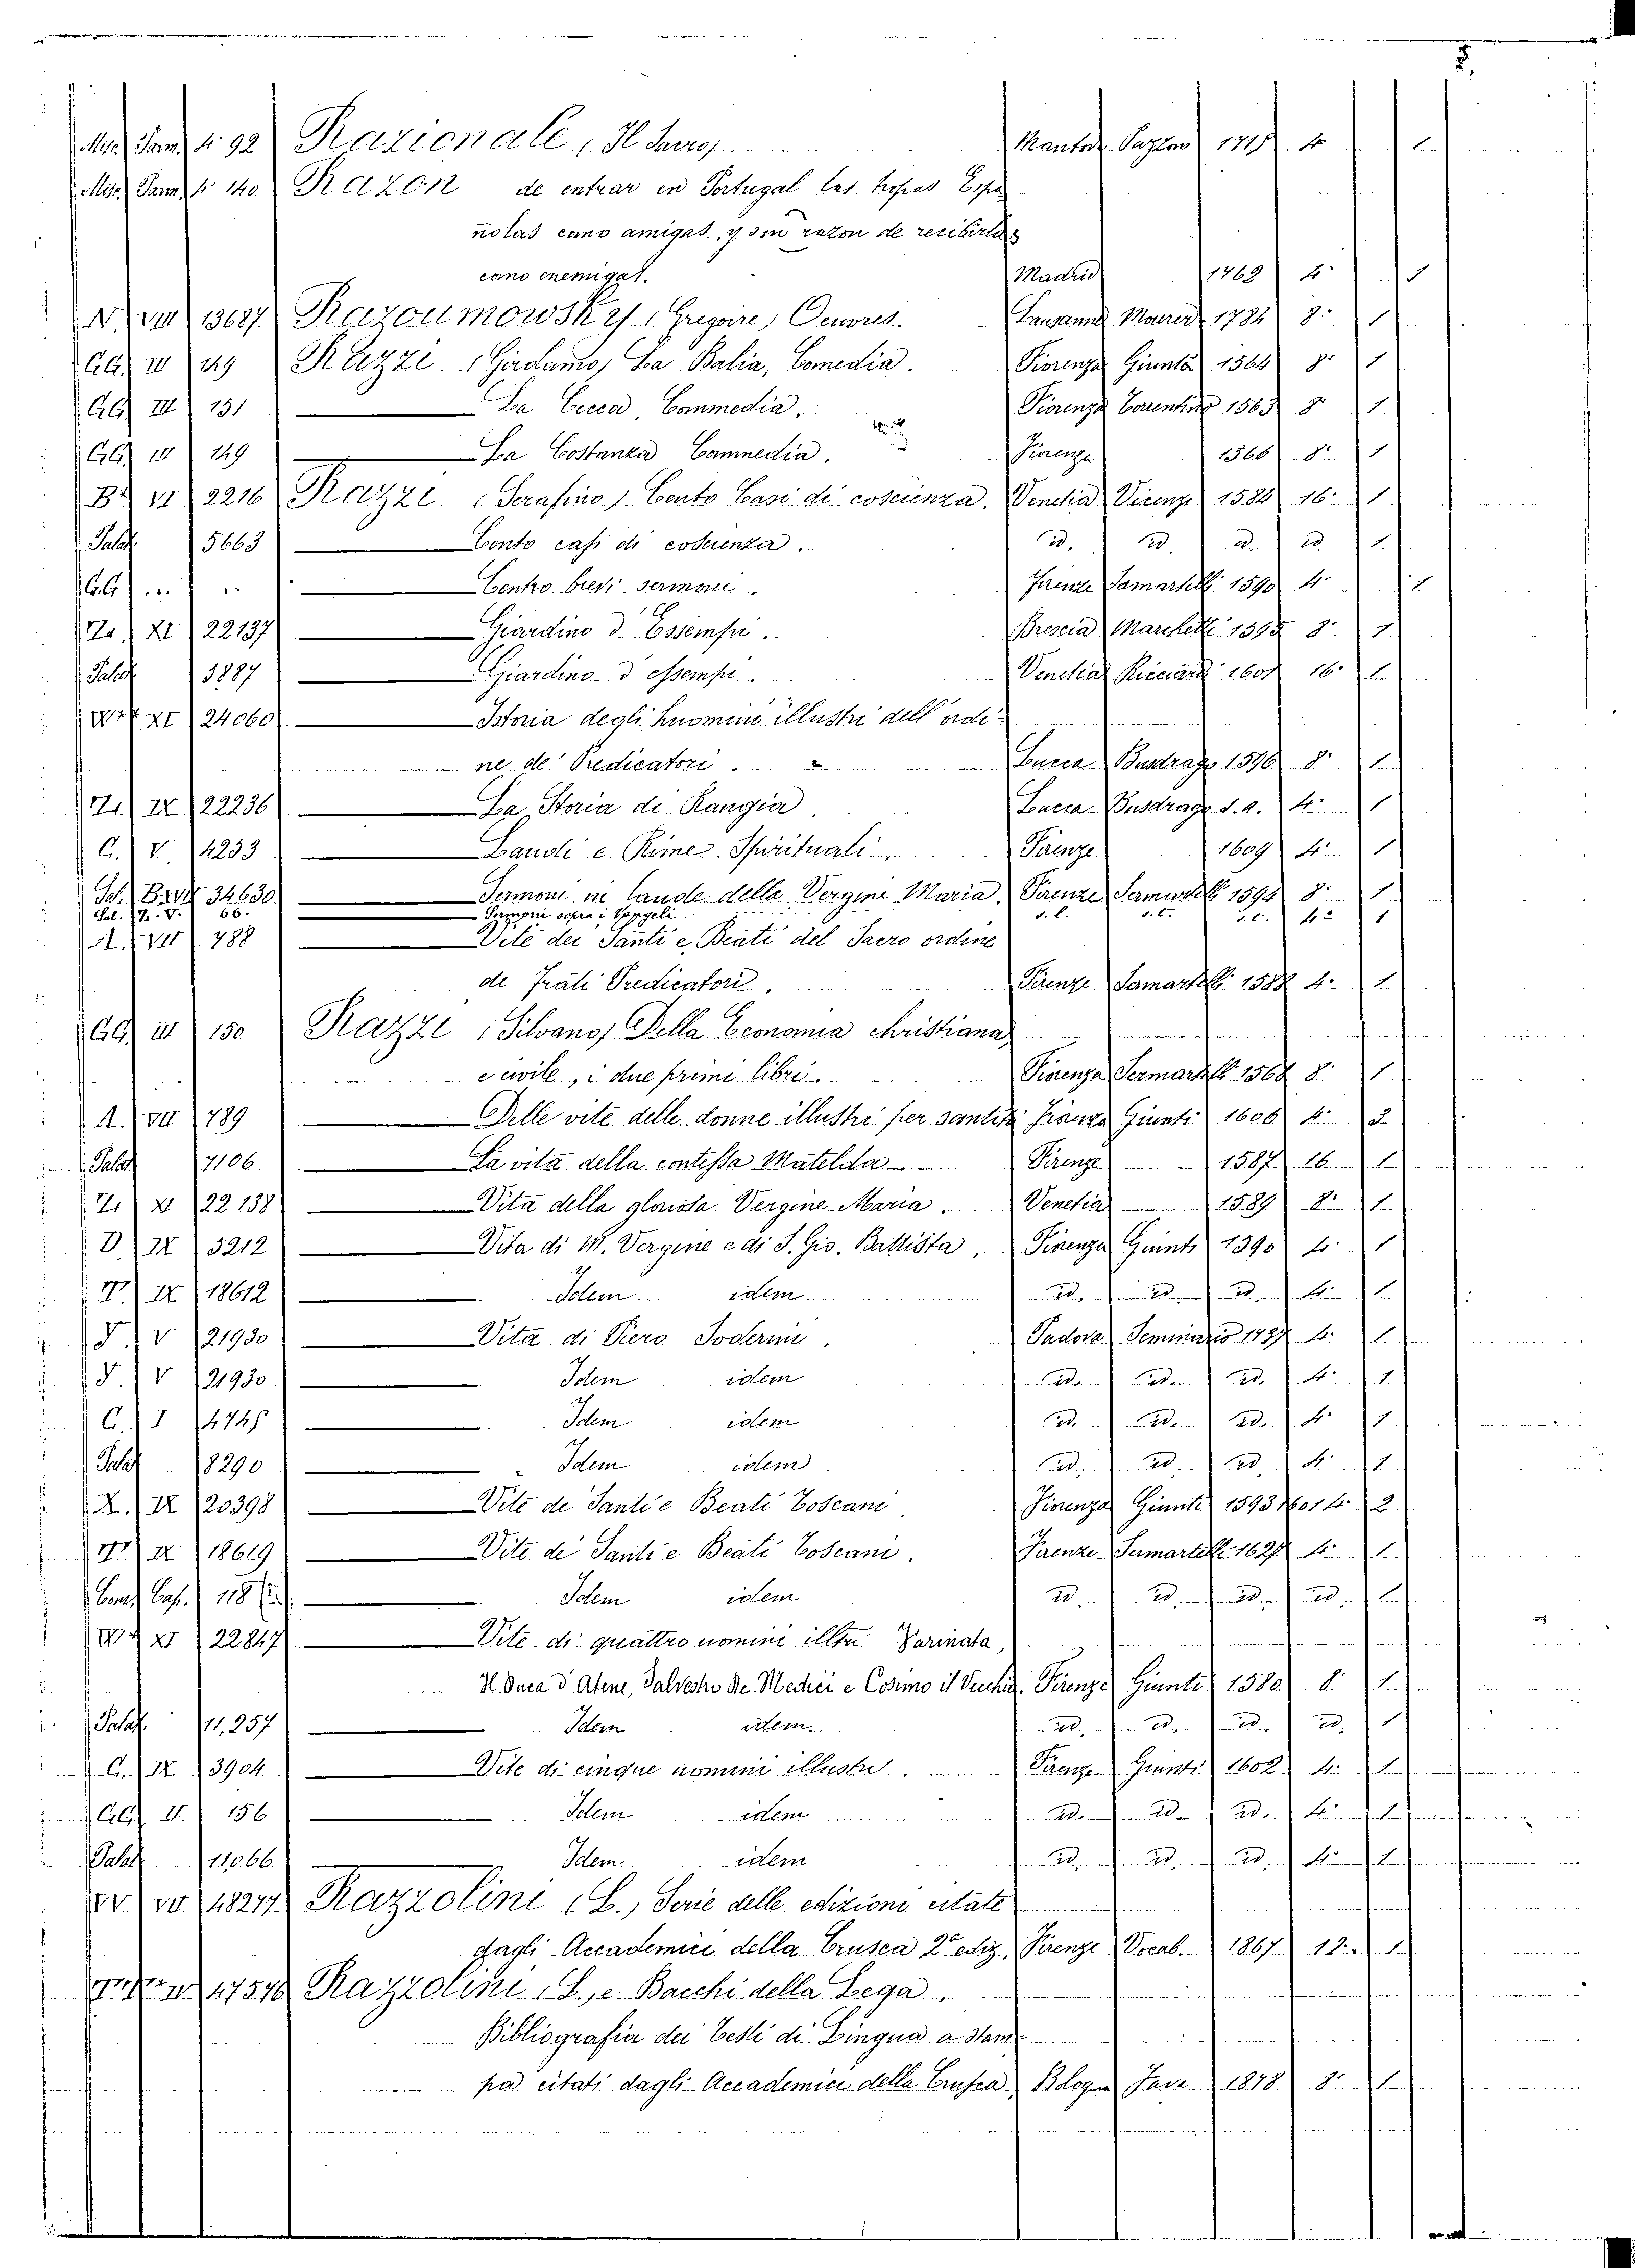 8.
Misc. Pam. fr. 92 Razionale, Il Sacro, Mantova 4° 1
Misc. Pam. fr. 140 Razon de entrar en Portugal las tropas Espa
nolas como amigas, y sin razon de recibirlas
como enemigas. Madrid 1762 4° 1
N. VIII 13687 Razoumowsky (Gregoire) Oeuvres. Lausanne Mourer 1784 8° 1
GG. III 149 Razzi (Girolamo) La Balia, Comedia. Fiorenza Giunta 1564 8° 1
GG. III 151 La Cecca, Commedia. Fiorenza 1563 8° 1
GG. III 149 La Costanza Commedia. Firenze 8° 1
B VI 2216 Razzi (Serafino) Cento Casi di coscienza. Venetia 16° 1
Palat. 5663 Cento casi di coscienza. id. id. id. id. 1
GG. Cento brevi sermoni. Firenze Sermartelli 1590 4° 1
XI 22137 Giardino d'Essempi. Brescia Marchetti 8° 1
Palat. 5887 Giardino d'essempi. Venetia Ricciardi 1601 16° 1
XI 24060 Istoria degli huomini illustri dell' ordi-
ne de' Predicatori. Lucca Busdrago 1596 8° 1
IX 22236 La Storia di Raugia. Lucca Busdrago 4° 1
C. V 4253 Laudi e Rime Spirituali. Firenze 1609 4° 1
34630 Sermoni in laude della Vergine Maria. Firenze Sermartelli 8° 1
66. Sermoni sopra i Vangeli s.l. 4° 1
A. VII 788 Vite dei Santi e Beati del Sacro ordine
de' Frati Predicatori. Firenze Sermartelli 4° 1
GG. III 150 Razzi (Silvano) Della Economia christiana,
e civile, i due primi libri. Fiorenza Sermartelli 1568 8° 1
A. VII 789 Delle vite delle donne illustri per santità Firenze Giunti 1606 4°
Palat. 7106 La vita della contessa Matelda Firenze 1587 16° 1
XI 22138 Vita della gloriosa Vergine Maria. Venetia 1589 8° 1
D. IX 5212 Vita di M. Vergine e di S. Gio. Battista. Fiorenza Giunti 4° 1
IX 18612 Idem idem id. id. id. 4° 1
S. V 21930 Vita di Piero Soderini. Padova Seminario 1737 4° 1
S. V 21930 Idem idem id. id. id. 4° 1
C. I 4745 Idem idem id. id. id. 4° 1
Palat. 8290 Idem idem id. id. id. 4° 1
X. IX 20398 Vite de Santi e Beati Toscani. Fiorenza Giunti 1593 1601 4° 2
IX 18619 Vite de' Santi e Beati Toscani. Firenze Sermartelli 1627 4° 1
118 Idem idem id. id. id. id. 1
XI 22847 Vite di quattro uomini illtri Farinata,
Il Duca d'Atene, Salvestro de Medici e Cosimo il Vecchio. Firenze Giunti 1580 8° 1
Palat. 11,257 Idem idem id. id. id. id. 1
C. IX 3904 Vite di cinque uomini illustri. Firenze Giunti 1602 4° 1
GG. II 156 Idem idem id. id. id. 4° 1
Palat. 11066 Idem idem id. id. id. 4° 1
VII 18277 Razzolini (L.) Serie delle edizioni citate
dagli Accademici della Crusca 2ª ediz. Firenze Vocab. 1867 12° 1
17576 Razzolini, L., e Bacchi della Lega.
Bibliografia dei Testi di Lingua a stam-
pa citati dagli Accademici della Crusca Bologna 1878 8° 1